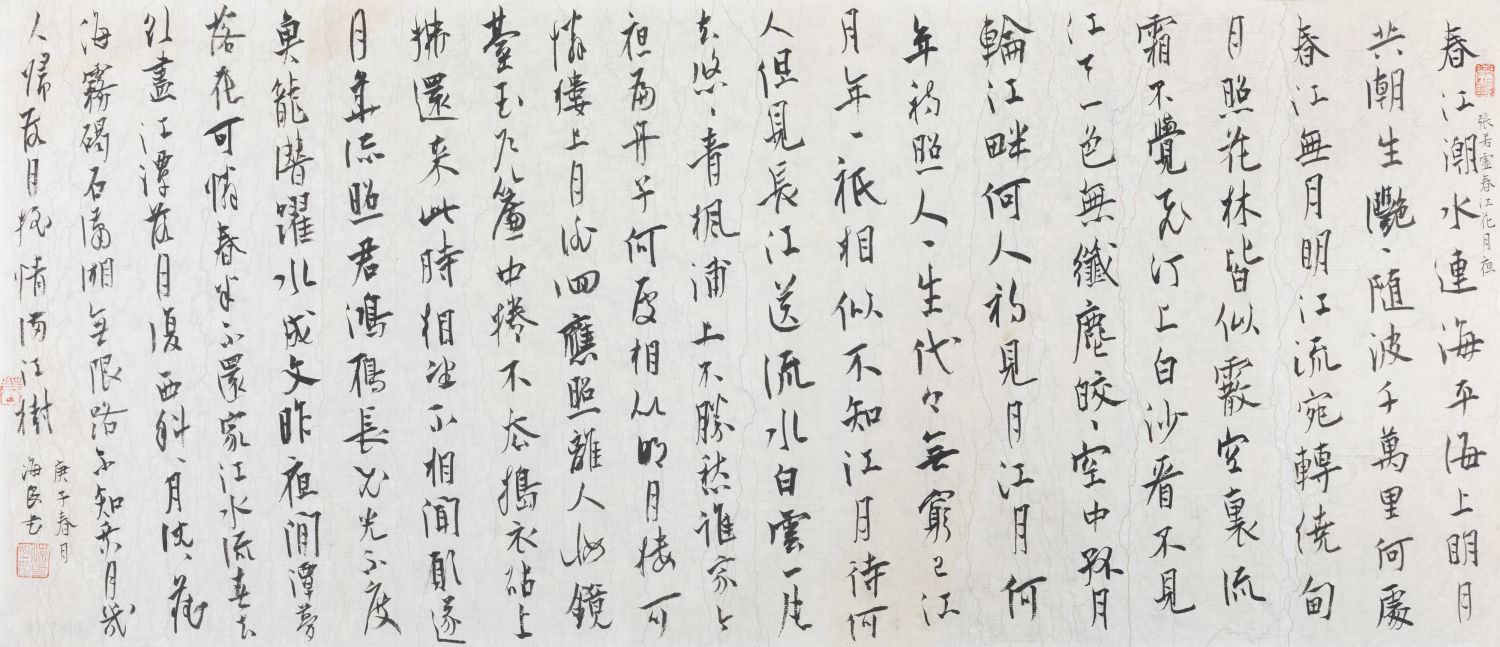 張若虛春江花月夜
春江潮水連海平海上明月
共潮生灧、随波千萬里何處
春江無月明江流宛轉繞甸
月照花林皆似霰空裏流
霜不覺飛汀上白沙看不見
江天一色無纖塵皎、空中孤月
輪江畔何人初見月江月何
年初照人、生代々無窮已江
月年、祇相似不知江月待何
人但見長江送流水白雲一片
去悠、青楓浦上不勝愁誰家今
夜扁舟子何處相以明月楼可
憐樓上月徘回應照離人妝鏡
臺玉户簾中捲不去搗衣砧上
拂還来此時相望不相聞願逐
月華流照君鴻雁長飛光不度
魚龍潛躍水成文昨夜閒潭夢
落花可憐春半不還家江水流春去
欲盡江潭落月復西斜、月沉、藏
海霧碣石瀟湘無限路不知乘月幾
人歸落月摇情滿江樹
庚子春月
海民书